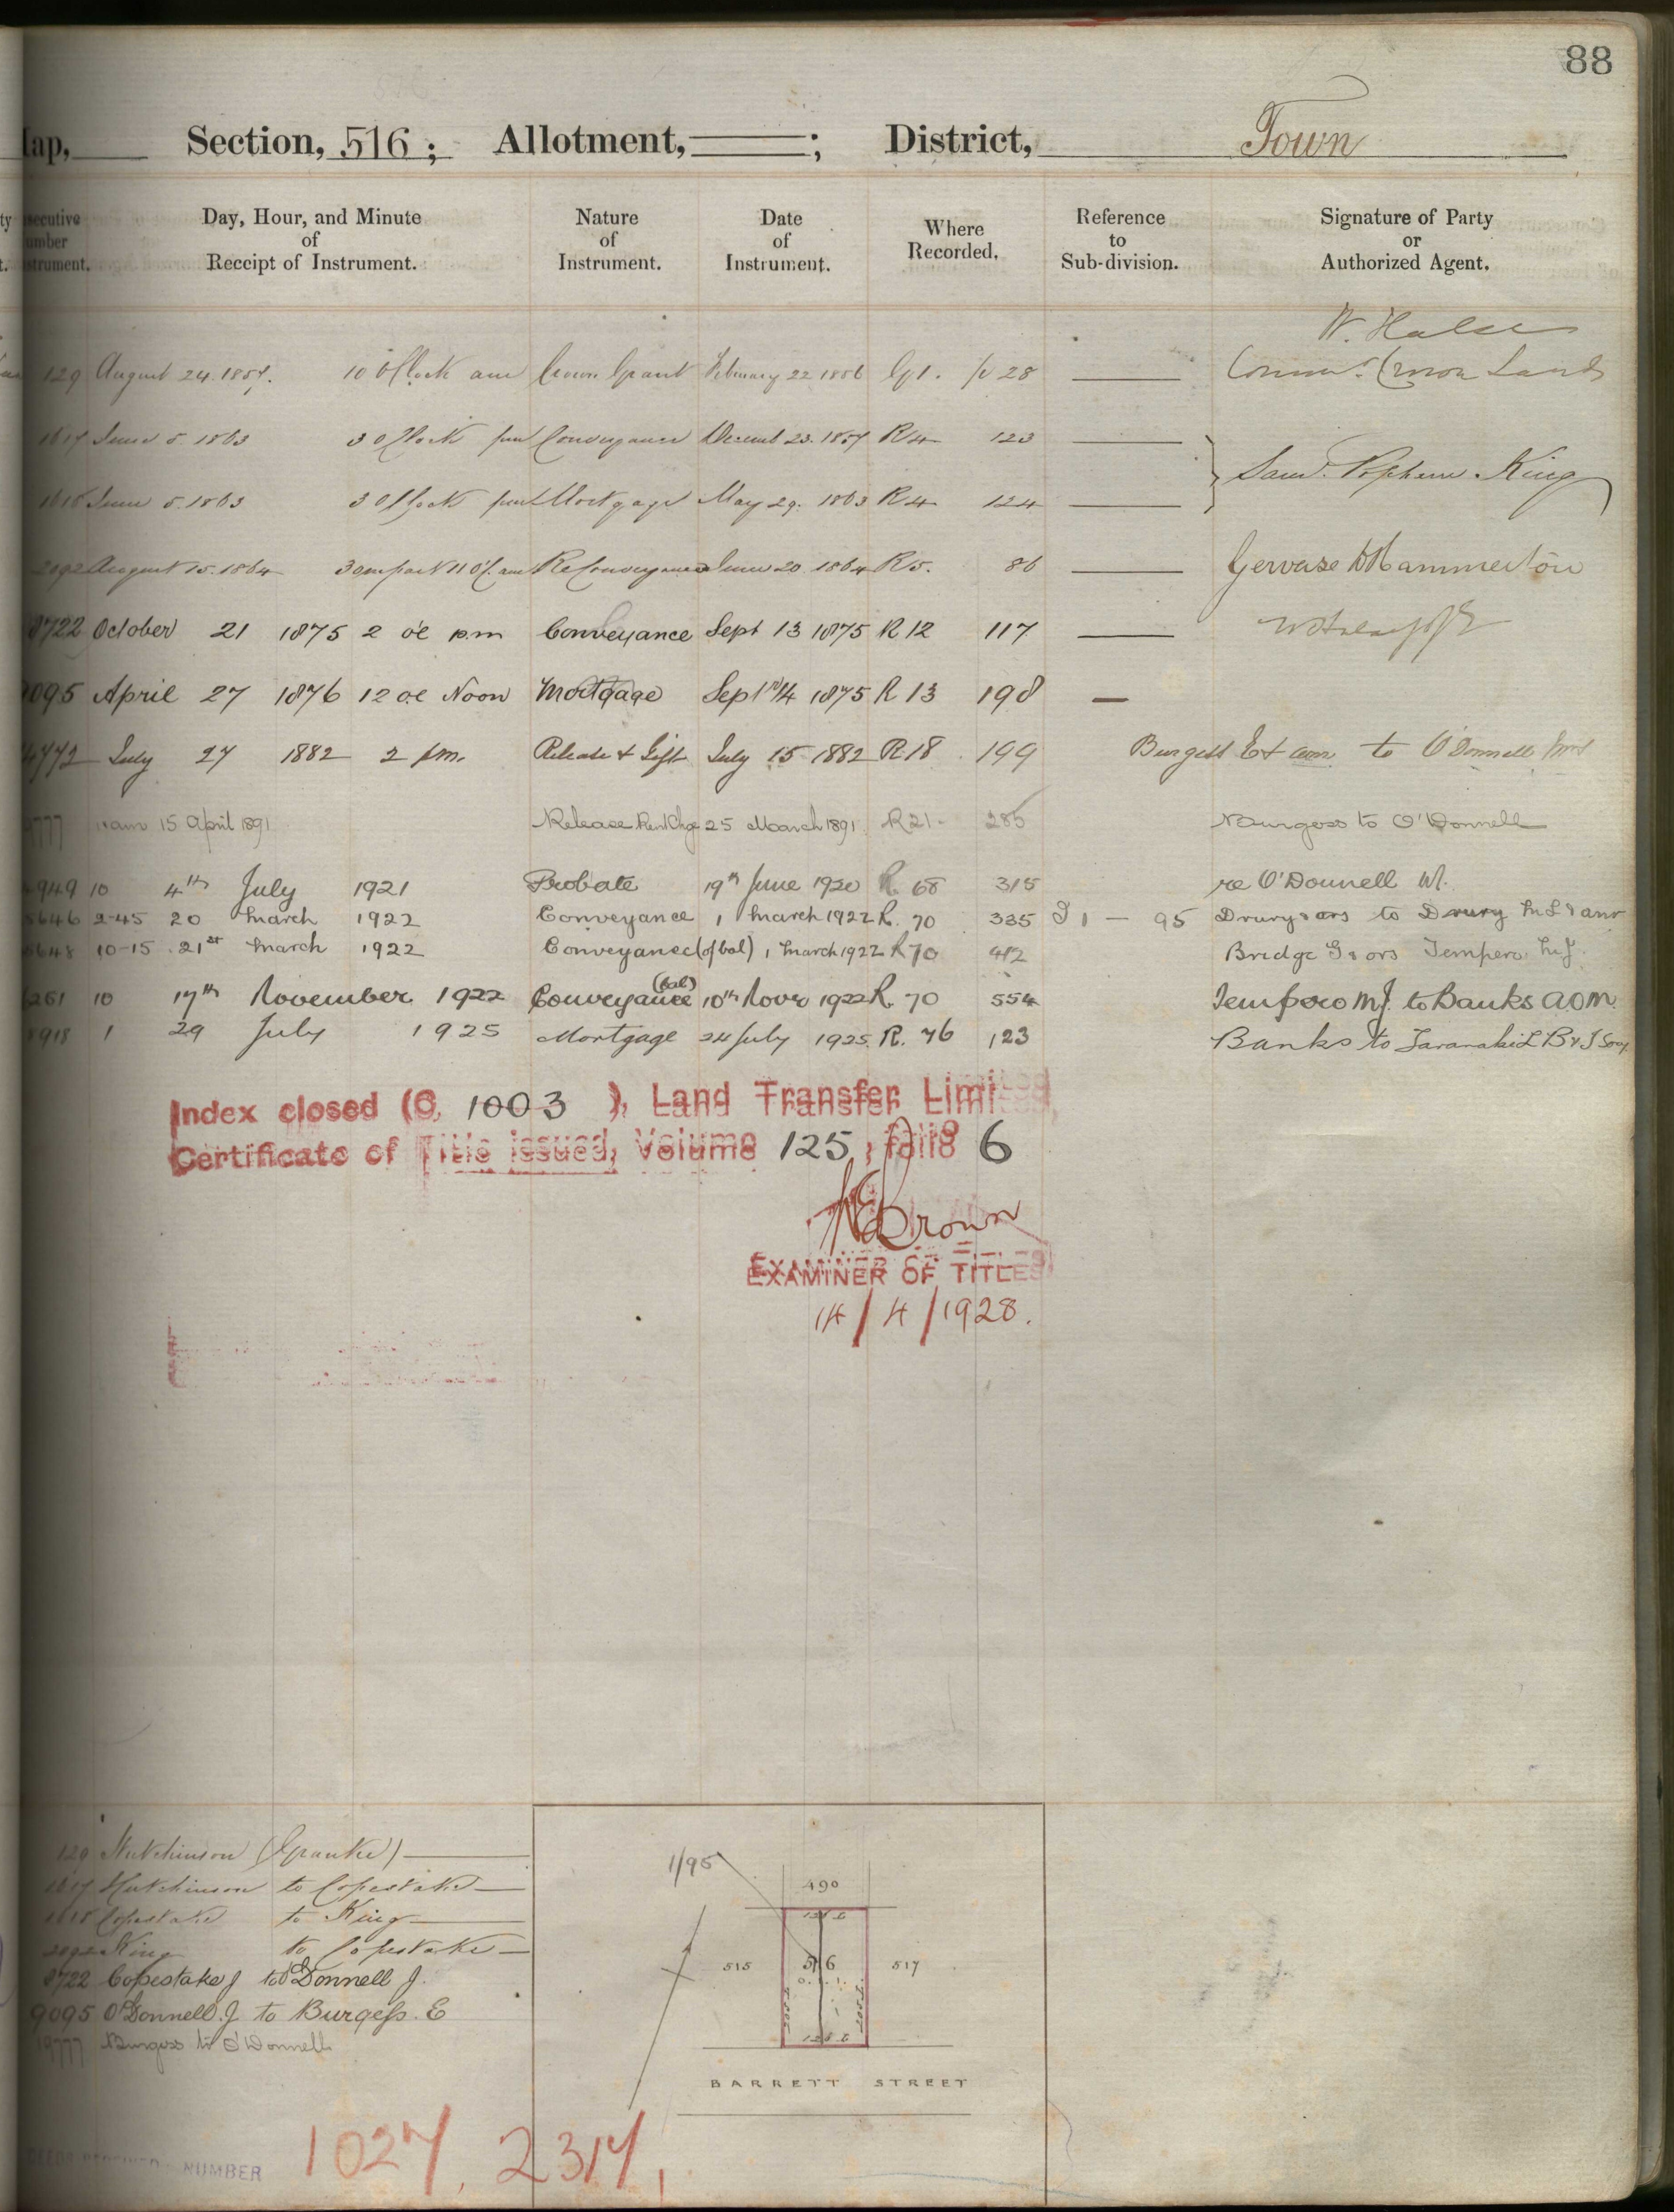 88
Map, Section, 516; Allotment, ; District, Town
Day, Hour, and Minute of Receipt of Instrument.
Nature of Instrument.
Date of Instrument.
Where Recorded.
Reference to Sub-division.
Signature of Party or Authorized Agent.
W. Halse
129 August 24. 1857. 10 O'Clock am Crown Grant February 22 1856 G1. fo 28 Commr. Crown Lands
1617 June 5. 1863 3 O'Clock pm Conveyance Decemb 23. 1857 R4 123
Saml. Popham King
1618 June 5. 1863 3 O'Clock pm Mortgage May 29. 1863 R4 124
2092 August 15. 1864 30m past 11 O'C. am ReConveyance June 20. 1864 R5. 86 Gervase D Hammerton
8722 October 21 1875 2 o'c p.m Conveyance Sept 13 1875 R 12 117
9095 April 27 1876 12 o.c Noon Mortgage Sept 14 1875 R 13 198
July 27 1882 2 pm. Release & Gift July 15 1882 R 18 199 Burgess E & anr to O'Donnell
19777 11 am 15 April 1891 Release Rent Chge 25 March 1891 R 21. 285 Burgess to O'Donnell
10 4th July 1921 Probate 19th June 1920 R. 68 315 re O'Donnell M.
2-45 20 March 1922 Conveyance 1 March 1922 R. 70 335 I 1 — 95 Drury & ors to Drury M L & anr
10-15 21st March 1922 Conveyance (of bal) 1 March 1922 R 70 412 Bridge G & ors Tempero M J.
10 17th November 1922 Conveyance (bal) 10th Novr 1922 R. 70 554 Tempero M J. to Banks A.O.M.
1 29 July 1925 Mortgage 24 July 1925 R. 76 123 Banks to Taranaki L B & I Socy
Index closed (C. 1003 ), Land Transfer Limited
Certificate of Title issued, Volume 125, folio 6
Brown
EXAMINER OF TITLES
14/4/1928.
129 Hutchinson (Grantee)
1617 Hutchinson to Copestake
1618 Copestake to King
2092 King to Copestake
8722 Copestake J to O'Donnell J.
9095 O'Donnell. J to Burgess. E
19777 Burgess to O'Donnell
1/95
490
515
516
517
BARRETT STREET
NUMBER
1027, 2317,